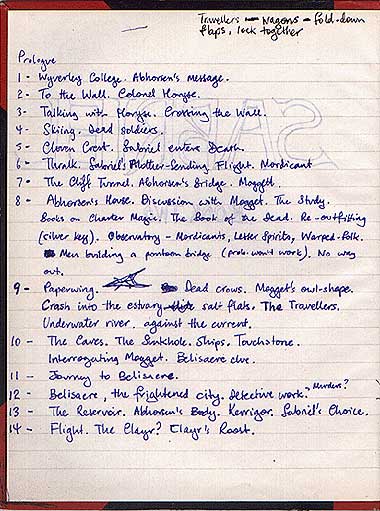 Travellers – Wagons – fold-down
flaps, lock together
Prologue
1 - Wyverley College. Abhorsen's message.
2 - To the Wall. Colonel Horyse.
3 - Talking with Horyse. Crossing the Wall.
4 - Skiing. Dead soldiers.
5 - Cloven Crest. Sabriel enters Death.
6 - Thralk. Sabriel's Mother-Sending. Flight. Mordicant
7 - The Cliff Tunnel. Abhorsen's Bridge. Moggett.
8 - Abhorsen's House. Discussion with Mogget. The Study.
Books on Charter Magic. The Book of the Dead. Re-outfitting
(silver key). Observatory - Mordicants, Lesser Spirits, Warped-folk.
Men building a pontoon bridge (prob. won't work). No way
out.
9 - Paperwing. Dead crows. Mogget's owl-shape.
Crash into the estuary salt flats. The Travellers.
Underwater river. against the current.
10 - The Caves. The Sinkhole. Ships. Touchstone.
Interrogating Mogget. Belisaere clue.
11 - Journey to Belisaere.
12 - Belisaere, the frightened city. Detective work. Murders?
13 - The Reservoir. Abhorsen's Body. Kerrigor. Sabriel's Choice.
14 - Flight. The Clayr? Clayr's Roost.